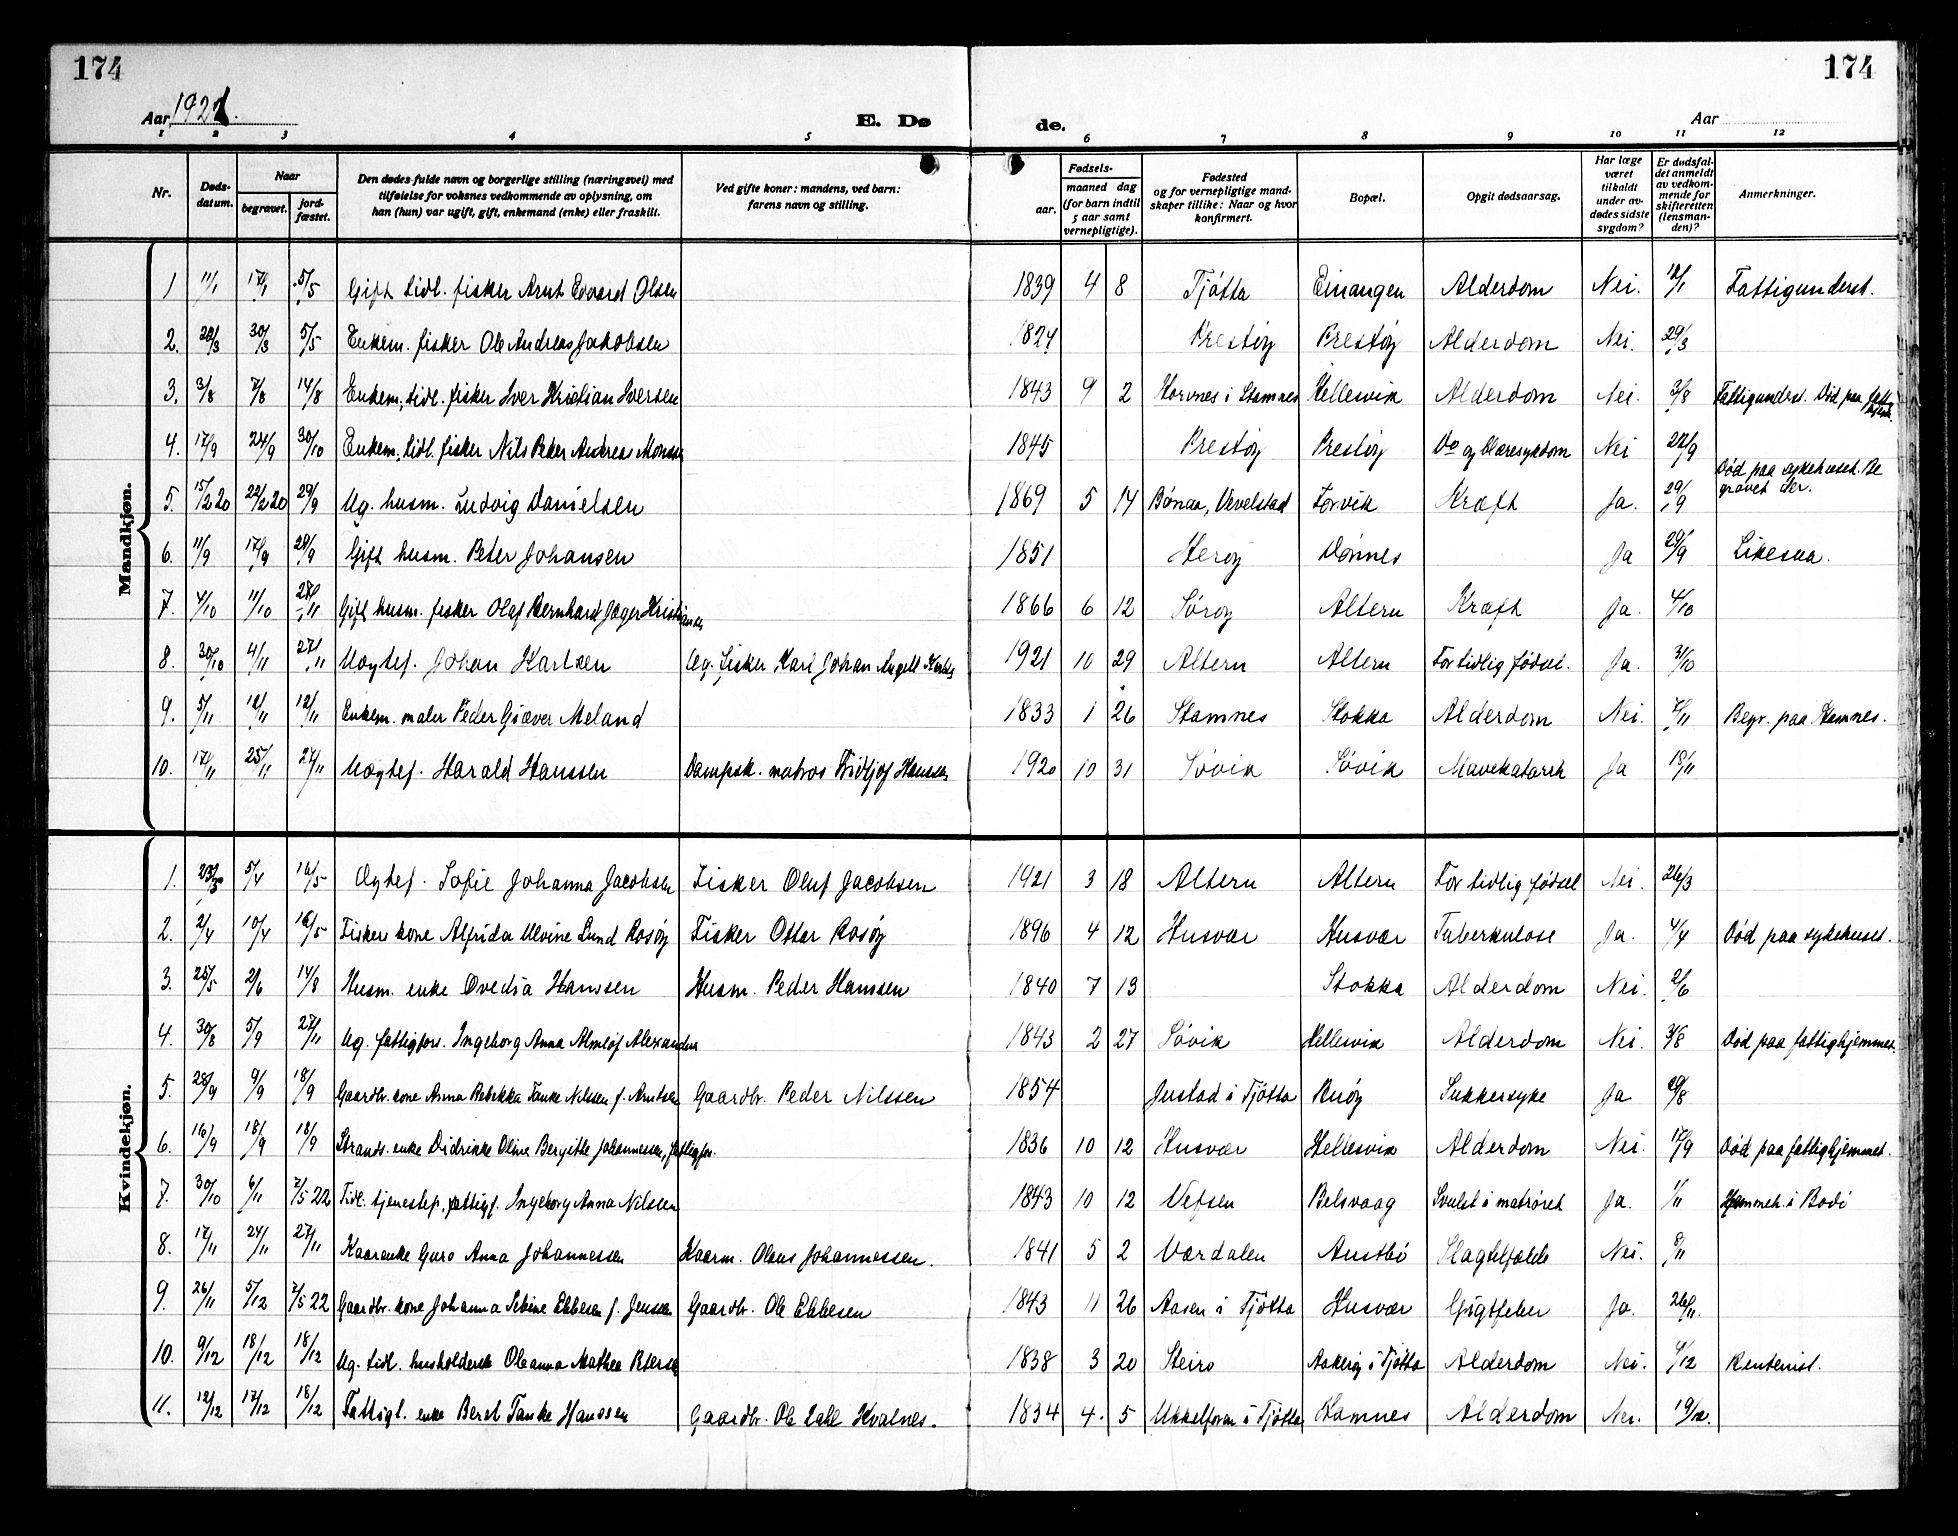 174 174
Aar 1921. E. Dø de. Aar
1 2 3 4 5 6 7 8 9 10 11 12
Nr. Døds-datum. Naar begravet. jord-fæstet. Den dødes fulde navn og borgerlige stilling (næringsvei) med tilføielse for voksnes vedkommende av oplysning, om han (hun) var ugift, gift, enkemand (enke) eller fraskilt. Ved gifte koner: mandens, ved barn: farens navn og stilling. Fødsels- aar. maaned dag (for barn indtil 5 aar samt vernepligtige). Fødested og for vernepligtige mand-skaper tillike: Naar og hvor konfirmert. Bopæl. Opgit dødsaarsag. Har læge været tilkaldt under av-dødes sidste sygdom? Er dødsfal-det anmeldt av vedkom-mende for skifteretten (lensman-den)? Anmerkninger.
Mandkjøn.
1 11/1 17/1 5/5 Gift tidl. fisker Arnt Edvard Olsen 1839 4 8 Tjøtta Einangen Alderdom Nei. 12/1 Fattigunderst.
2. 28/3 30/3 5/5 Enkem. fisker Ole Andreas Jakobsen 1824 Prestøy Prestøy Alderdom Nei. 29/3
3. 3/8 7/8 14/8 Enkem., tidl. fisker Iver Kristian Iversen 1843 9 2 Horvnes i Stamnes Hellesvik Alderdom Nei. 3/8 Fattigunderst. Død paa
4. 17/9 24/9 30/10 Enkem., tidl. fisker Nils Peter Andreas Monsen 1845 Prestøy Prestøy Do og blæresykdom Nei 22/9
5. 15/2 20 22/2 20 29/9 Ug. husm. Ludvig Danielsen 1869 5 14 Bønaa, Vevelstad Forvik Kræft Ja. 29/9 Død paa sykehuset. Begravet der.
6. 11/9 17/9 28/9 Gift husm. Peter Johansen 1851 Herøy Dønnes Ja 29/9 Likesaa.
7. 4/10 11/10 28/11 Gift husm. fisker Olaf Bernhard Jæger Kristiansen 1866 6 12 Sørøy Altern Kræft Ja. 4/10
8. 30/10 4/11 27/11 Uegtef. Johan Karlsen Ug. fisker Karl Johan Angell 1921 10 29 Altern Altern For tidlig fødsel. Ja. 31/10
9. 5/11 12/11 12/11 Enkem. maler Peder Giæver Meland 1833 1 26 Stamnes Stokka Alderdom Nei. 7/11 Begr. paa Stamnes.
10. 17/11 25/11 27/11 Uegtef. Harald Hanssen Dampsk. matros Fridtjof Hanssen 1920 10 31 Søvik Søvik Mavekatarrh Ja 18/11
Kvindekjøn.
1. 5/4 16/5 Egtef. Sofie Johanna Jacobsen Fisker Oluf Jacobsen 1921 3 18 Altern Altern For tidlig fødsel Nei. 26/3
2. 2/4 10/4 16/5 Fisker kone Alfrida Ulvine Lund Rosøy Fisker Ottar Rosøy 1896 4 12 Husvær Husvær Tuberkulose Ja. 4/4 Død paa sykehuset.
3. 25/5 2/6 14/8 Husm. enke Ovedia Hanssen Husm. Peder Hanssen 1840 7 13 Stokka Alderdom Nei. 2/6
4. 30/8 5/9 27/11 Ug. fattigfors. Ingeborg Anna Almlöf Alexander 1843 2 27 Søvik Hellesvik Alderdom Nei. 31/8 Død paa fattighjemmet.
5. 28/9 9/9 18/9 Gaardbr. kone Anna Rebekka Tanke Nilssen f. Arntsen Gaardbr. Peder Nilssen 1854 Justad i Tjøtta Buøy Sukkersyke Ja 29/8
6. 16/9 18/9 18/9 Strands. enke Didrikke Oline Bergitte Johannessen, fattigfor. 1836 10 12 Husvær Hellesvik Alderdom Nei. 17/9 Død paa fattighjemmet.
7. 30/10 6/11 7/5 22 Tidl. tjenestep., fattigf. Ingeborg Anna Nilssen 1843 10 12 Vefsen Belsvaag Svulst i matrøret Ja. 1/11 Hjemmeh. i Bodö
8. 17/11 24/11 27/11 Kaarenke Guro Anna Johannessen Kaarm. Olaus Johannessen. 1841 5 2 Værdalen Austbö Slagtilfælde Nei. 8/11
9. 26/11 5/12 7/5 22 Gaardbr. kone Johanna Sebine Ebbesen f. Jenssen Gaardbr. Ole Ebbesen 1843 11 26 Aasen i Tjøtta Husvær Gigtfeber Ja. 26/11.
10. 9/12 18/12 18/12 Ug. tidl. husholderske Oleanna Mathea Petersen 1838 3 20 Steiro Aakerøy i Tjøtta Alderdom Nei. 9/12 Rentenist.
11. 12/12 17/12 18/12 Fattigl. enke Beret Tanke Hanssen Gaardbr. Ole Kvalnes. 1834 4. 5 i Tjøtta Hamnes Alderdom Nei. 19/12.